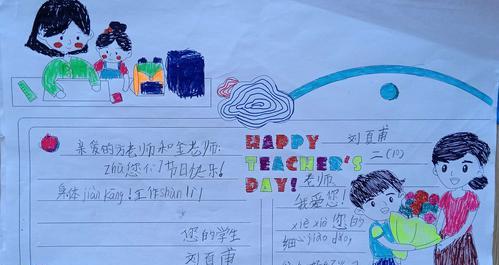 亲爱的方老师和金老师:
zhù您们节日快乐!
身体jiàn kāng!工作shùn lì
您的学生
刘百甫
HAPPY
TEACHER'S
DAY!
刘百甫
二(10)
老师
我爱您!
xiè xiè您的
细心jiào dǎo,